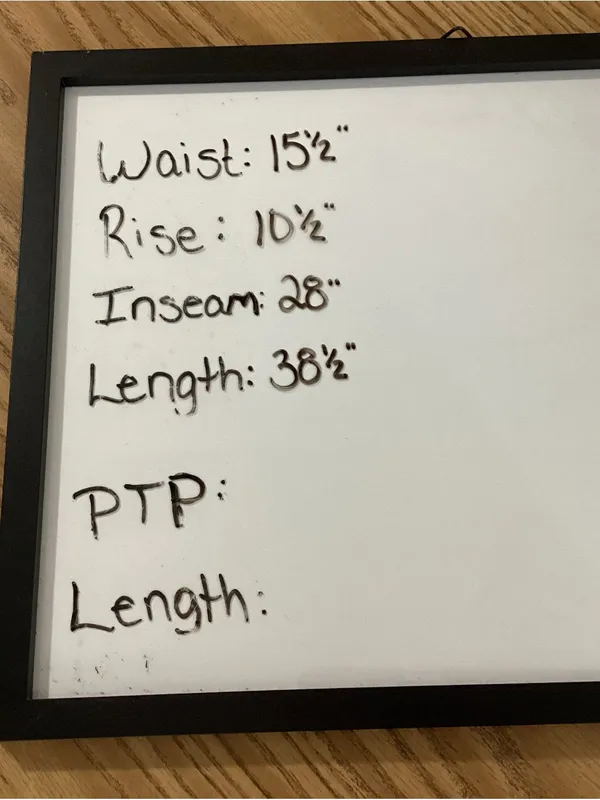 Waist: 15½"
Rise: 10½"
Inseam: 28"
Length: 38½"
PTP:
Length: